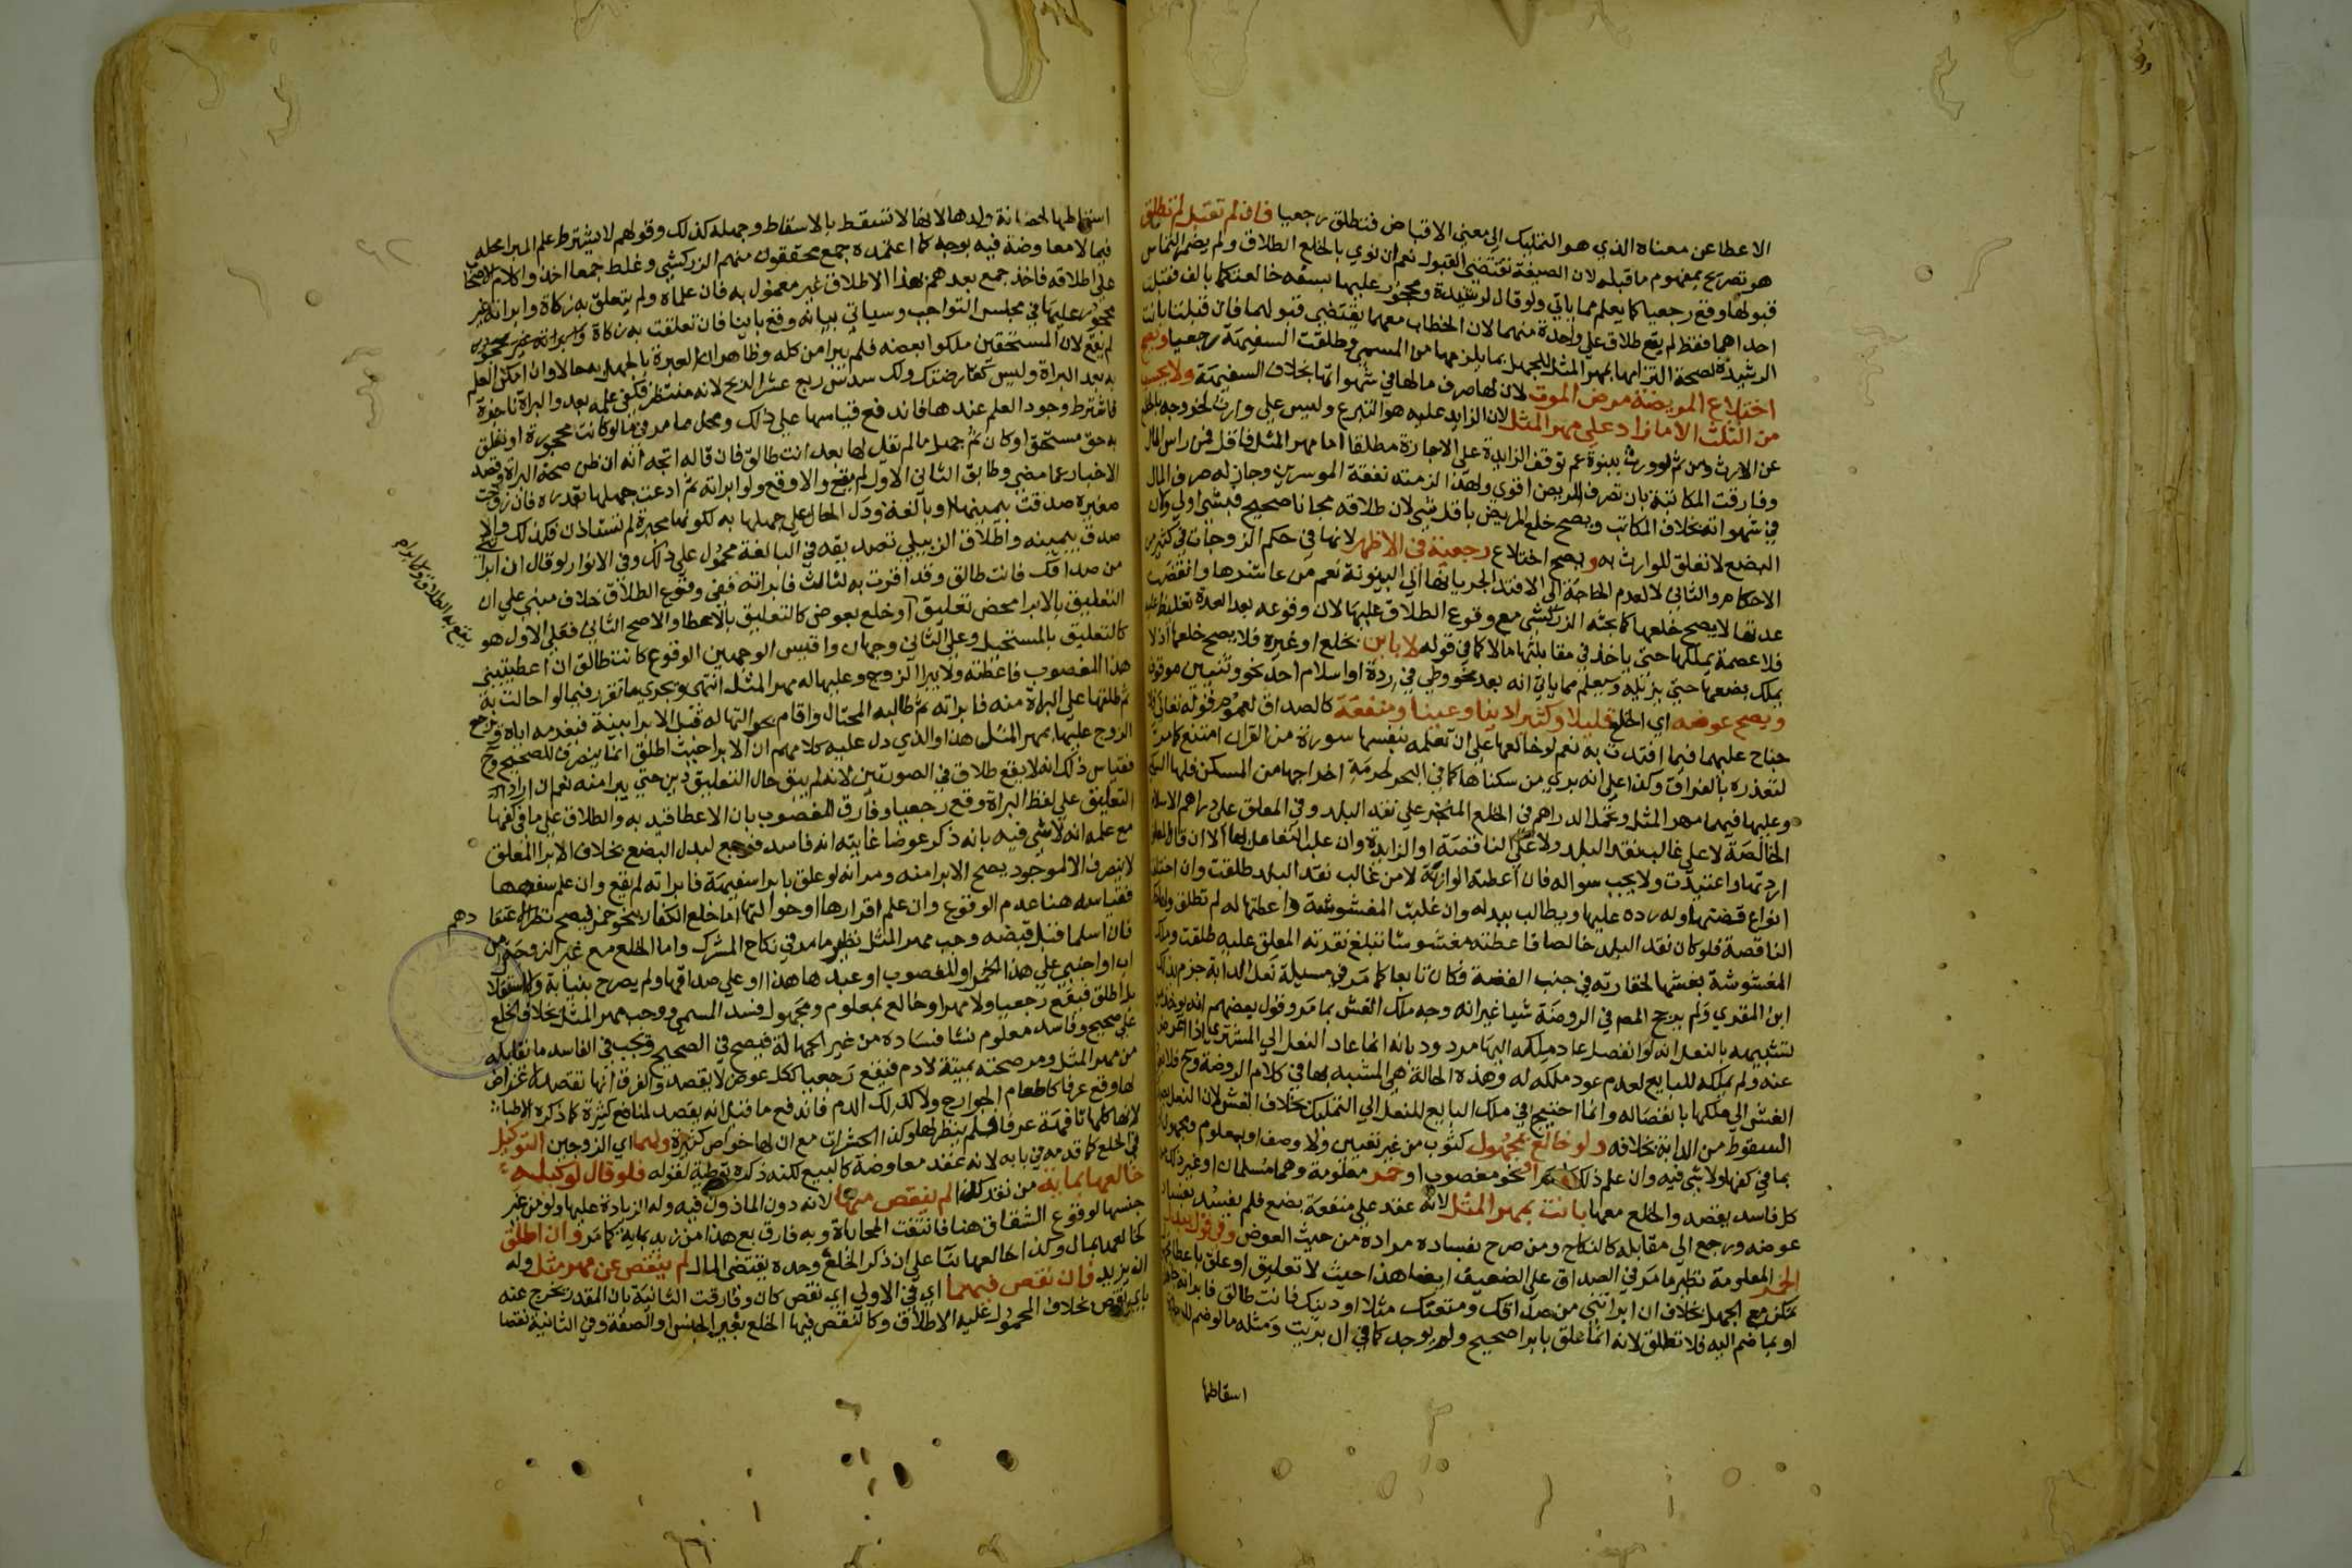 الاعطا عن معناه الذي هو التمليك الي معني الاقباض فتطلق رجعيا فان لم تقبل لم تطلق
هو تصريح بمفهوم ما قبله لان الصيغة تقتضي القبول نعم ان نوي بالخلع الطلاق ولم يضمر التماس
قبولها وقع رجعيا كما يعلم مما ياتي ولو قال لرشيدة ومحجور عليها بسفه خالعتكما بالف فقبلت
احداهما فقط لم يقع طلاق علي واحدة منهما لان الخطاب معهما يقتضي قبولهما فان قبلتا بانت
الرشيدة لصحة التزامها بمهر المثل للجهل بما يلزمها من المسمي وطلقت السفيهة رجعيا ويصح
اختلاع المريضة مرض الموت لان لها صرف مالها في شهواتها بخلاف السفيهة ولا يحسب
من الثلث الا ما زاد علي مهر المثل لان الزايد عليه هو التبرع وليس علي وارث لخروجه بالخلع
عن الارث ومن ثم لو ورث ببنوة عم توقف الزايدة علي الاجازة مطلقا اما مهر المثل فاقل فمن راس المال
وفارقت المكاتبة بان تصرف المريض اقوي ولهذا لزمته نفقة الموسرين وجاز له صرف المال
في شهواته بخلاف المكاتب ويصح خلع المريض باقل شي لان طلاقه مجانا صحيح فبشي اولي ولان
البضع لا تعلق للوارث به ويصح اختلاع رجعية في الاظهر لانها في حكم الزوجات في كثير من
الاحكام والثاني لا لعدم الحاجة الي الافتدا لجريانها الي البينونة نعم من عاشرها وانقضت
عدتها لا يصح خلعها كما بحثه الزركشي مع وقوع الطلاق عليها لان وقوعه بعد العدة تغليظ عليه
فلا عصمة يملكها حتي ياخذ في مقابلتها مالا كما في قوله لا باين بخلع او غيره فلا يصح خلعها اذ لا
يملك بضعها حتي يزيله ويعلم مما ياتي انه بعد نحو وطي في ردة او اسلام احد نحو وثنيين موقوف
ويصح عوضه اي الخلع قليلا وكثيرا دينا وعينا ومنفعة كالصداق لعموم قوله تعالي فلا
جناح عليهما فيما افتدت به نعم لو خالعها علي ان تعلمه بنفسها سورة من القران امتنع كما مر
لتعذره بالفراق وكذا علي انه بري من سكناها كما في البحر لحرمة اخراجها من المسكن فلها السكني
وعليها فيهما مهر المثل وتحمل الدراهم في الخلع المنجز علي نقد البلد وفي المعلق علي دراهم الاسلام
الخالصة لا علي غالب نقد البلد ولا علي الناقصة او الزايدة وان غلب التعامل بها الا ان قال المعلق
اردتها واعتيدت ولا يجب سواله فان اعطته الوازنة لا من غالب نقد البلد طلقت وان اختلفت
انواع فضتها وله رده عليها ويطالب ببدله وان غلبت المغشوشة واعطتها له لم تطلق
الناقصة فلو كان نقد البلد خالصا فاعطته مغشوشا تبلغ نقرته المعلق عليه طلقت وملك
المغشوشة بغشها لحقارته في جنب الفضة فكان تابعا كما مر في مسيلة نعل الدابة جزم بذلك
ابن المقري ولم يرجح المص في الروضة شيا غير انه وجه ملك الغش بما مر وقول بعضهم انه يوخذ من
تشبيهه بالنعل انه لو انفصل عاد ملكه اليها مردود بانه انما عاد النعل الي المشتري اذا اعرض
عنه ولم يملكه للبايع لعدم عود ملكه له وهذه الحالة هي المشبه بها في كلام الروضة وح فلا يعود
الغش الي ملكها بانفصاله وانما احتيج في ملك البايع للنعل الي التمليك بخلاف الغش لان النعل
السقوط من الدابة بخلافه ولو خالع بمجهول كثوب من غير تعيين ولا وصف او بمعلوم ومجهول او
بما في كفها ولا شي فيه وان علم ذلك او نحو مغصوب او خمر معلومة وهما مسلمان او غير ذلك من
كل فاسد يقصد والخلع معها بانت بمهر المثل لانه عقد علي منفعة بضع فلم يفسد بفساد
عوضه ورجع الي مقابله كالنكاح ومن صرح بفساده مراده من حيث العوض وفي قول ببدل
الخمر المعلومة نظير ما مر في الصداق علي الضعيف ايضا هذا حيث لا تعليق او علق باعطا
ممكن مع الجهل بخلاف ان ابراتني من صداقك ومتعتك مثلا او دينك فانت طالق فابراته جاهلة
او بما ضم اليه فلا تطلق لانه انما علق بابرا صحيح ولم يوجد كما في ان بريت ومثله ما لو ضم للبراة
اسقاطها
اسقاطها لحضانة ولدها لانها لا تسقط بالاسقاط وجهله كذلك وقولهم لا يشترط علم المبرا محله
فيما لا معاوضة فيه بوجه كما اعتمده جمع محققون منهم الزركشي وغلط جمعا اخذوا كلام الاصحاب
علي اطلاقه فاخذ جمع بعدهم بهذا الاطلاق غير معمول به فان علماه ولم يتعلق به زكاة وابراته غير
محجور عليها في مجلس التواجب وسياتي بيانه وقع باينا فان تعلقت به زكاة
لم يقع لان المستحقين ملكوا بعضه فلم يبرا من كله وظاهر ان العبرة بالجهل به حالا وان امكن العلم
به بعد البراة وليس كقارضتك ولك سدس ربع عشر الربح لانه منتظر فكفي علمه بعد والبراة ناجزة
فاشترط وجود العلم عندها فاندفع قياسها علي ذلك ومحل ما مر في ما لو كانت محجورة او تعلق
به حق مستحق او كان ثم جهل ما لم تقل لها بعد انت طالق فان قاله اتجه انه ان ظن صحة البراة وقصد
الاخبار عما مضي وطابق الثاني الاول لم يقع والا وقع ولو ابراته ثم ادعت جهلها بقدره فان زوجت
صغيرة صدقت بيمينها او بالغة ودل الحال علي جهلها به لكونها مجبرة لم تستاذن فكذلك والا
صدق بيمينه واطلاق الزبيلي تصديقه في البالغة محمول علي ذلك وفي الانوار لو قال ان ابراتني
من صداقك فانت طالق وقد اقرت به لثالث فابراته ففي وقوع الطلاق خلاف مبني علي ان
التعليق بالابرا محض تعليق او خلع بعوض كالتعليق بالاعطا والاصح الثاني فعلي الاول هو
كالتعليق بالمستحيل وعلي الثاني وجهان واقيس الوجهين الوقوع كانت طالق ان اعطيتيني
هذا المغصوب فاعطته ولا يبرا الزوج وعليها له مهر المثل انتهي ويجري ما تقرر فيما لو احالت به
ثم طلقها علي البراة منه فابراته ثم طالبه المحتال واقام بحوالتها له قبل الابرا بينة فيغرمه اياه ويرجع
الزوج عليها بمهر المثل هذا والذي دل عليه كلامهم ان الابرا حيث اطلق انما ينصرف للصحيح وح
فقياس ذلك انه لا يقع طلاق في الصورتين لانه لم يبق حال التعليق دين حتي يبرا منه نعم ان اراد
التعليق علي لفظ البراة وقع رجعيا وفارق المغصوب بان الاعطا قيد به والطلاق علي ما في كفها
مع علمه انه لا شي فيه بانه ذكر عوضا غايته انه فاسد فرجع لبدل البضع بخلاف الابرا المعلق
لا ينصرف الا لموجود يصح الابرا منه ومر انه لو علق بابرا سفيهة فابراته لم يقع وان علم سفهها
فقياسه هنا عدم الوقوع وان علم اقرارها او حوالتها اما خلع الكفار بنحو خمر فيصح نظرا لاعتقادهم
فان اسلما قبل قبضه وجب مهر المثل نظير ما مر في نكاح المشرك واما الخلع مع غير الزوجة من
اب او اجنبي علي هذا الخمر او المغصوب او عبدها هذا او علي صداقها ولم يصرح بنيابة ولا استقلال
بل اطلق فيقع رجعيا ولا مهر او خالع بمعلوم ومجهول فسد المسمي ووجب مهر المثل بخلاف الخلع
علي صحيح وفاسد معلوم نشا فساده من غير الجهالة فيصح في الصحيح ويجب في الفاسد ما يقابله
من مهر المثل ومر صحته بميتة لا دم فيقع رجعيا ككل عوض لا يقصد والفرق انها تقصد لاغراض
لها وقع عرفا كاطعام الجوارح ولا كذلك الدم فاندفع ما قيل انه يقصد لمنافع كثيرة كما ذكره الاطباء
لانها كلها تافهة عرفا فلم ينظر لها وكذا الحشرات مع ان لها خواص كثيرة ولهما اي الزوجين التوكيل
في الخلع كما قدمه في بابه لانه عقد معاوضة كالبيع لكنه ذكره توطية لقوله فلو قال لوكيله
خالعها بماية من نقد كذا لم ينقص منها لانه دون الماذون فيه وله الزيادة عليها ولو من غير
جنسها لوقوع الشقاق هنا فانتفت المحاباة وبه فارق بع هذا من زيد بماية كما مر وان اطلق
كخالعها بمال وكذا خالعها بنا علي ان ذكر الخلع وحده يقتضي المال لم ينقص عن مهر مثل وله
ان يزيد فان نقص فيهما اي في الاولي اي نقص كان وفارقت الثانية بان المقدر يخرج عنه
باي نقص بخلاف المحمول عليه الاطلاق وكالنقص فيها الخلع بغير الجنس او الصفة وفي الثانية نقصا